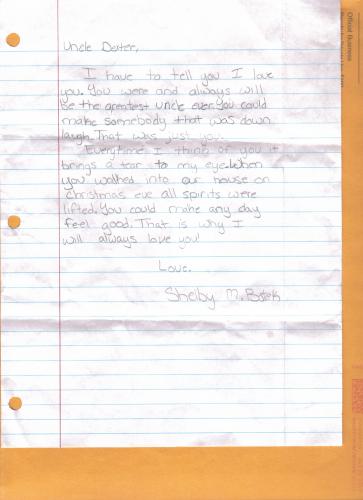 Uncle Dexter,
I have to tell you I love
you. You were and always will
be the greatest uncle ever. You could
make somebody that was down
laugh. That was just you.
Everytime I think of you it
brings a tear to my eye. When
you walked into our house on
Christmas eve all spirits were
lifted. You could make any day
feel good. That is why I
will always love you!
Love,
Shelby M.
Official Business